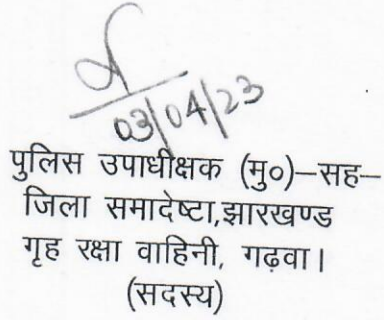 03/04/23
पुलिस उपाधीक्षक (मु०)–सह–
जिला समादेष्टा,झारखण्ड
गृह रक्षा वाहिनी, गढ़वा।
(सदस्य)